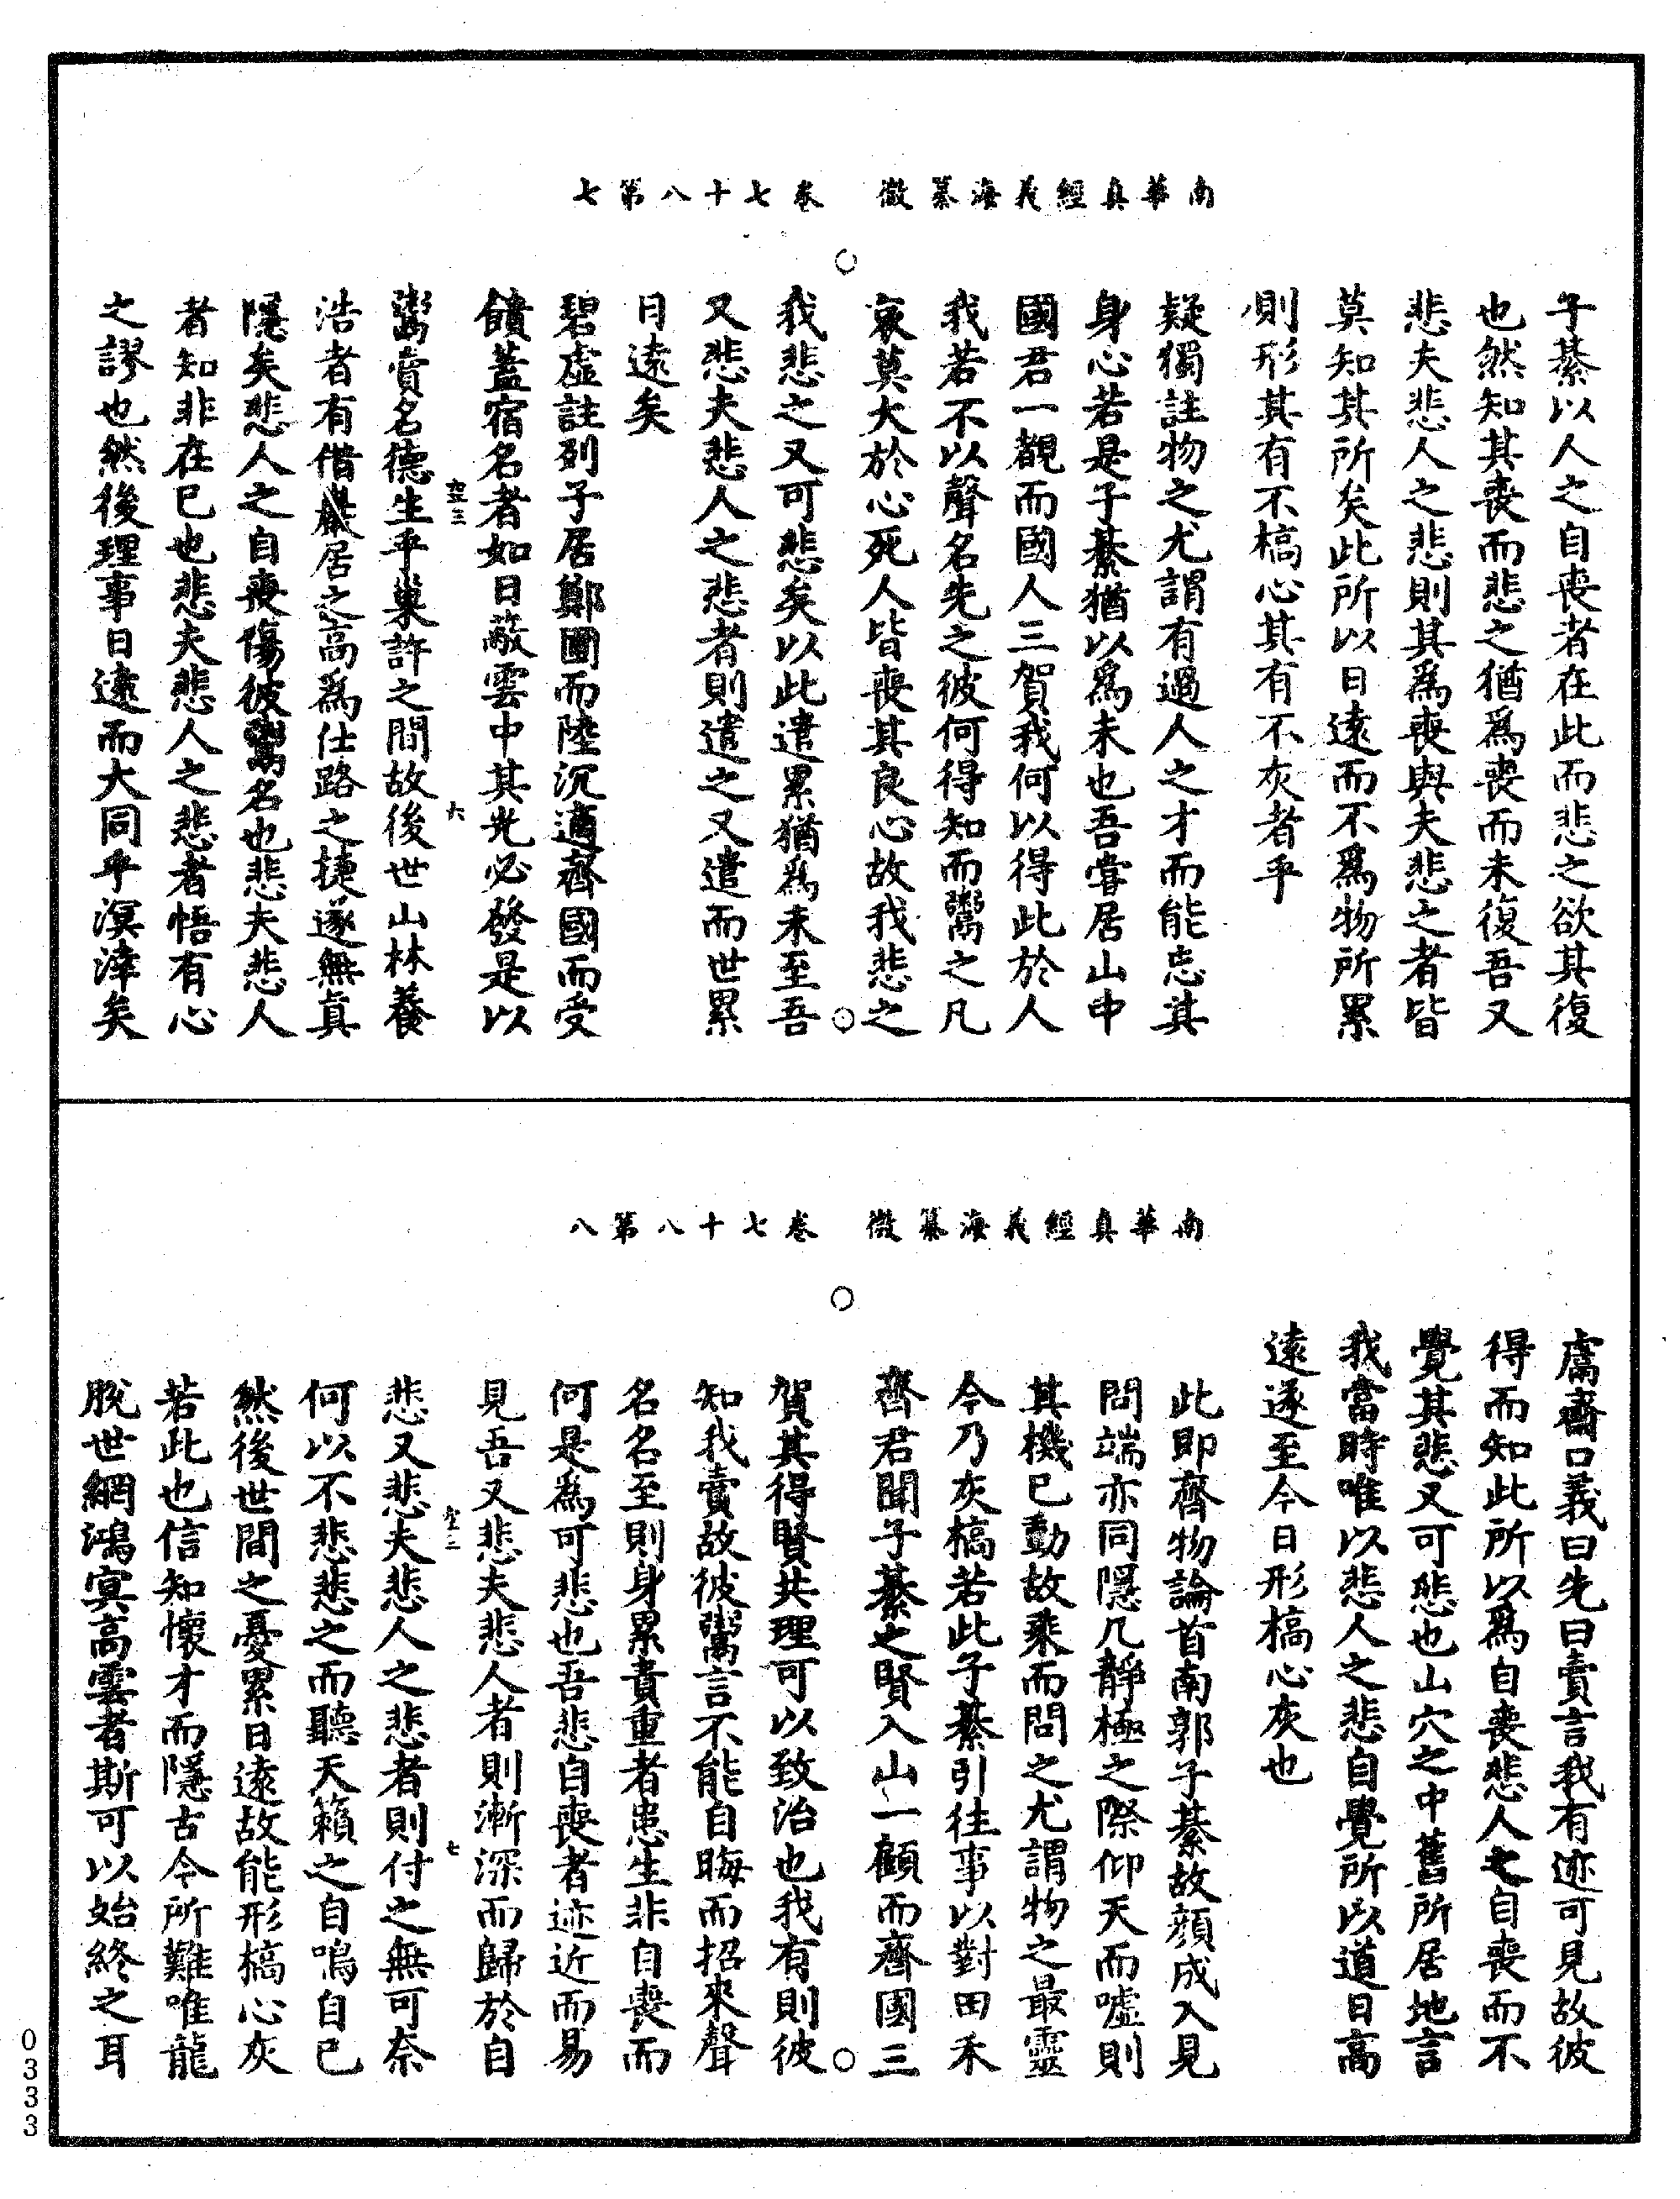 南華真經義海纂微　卷七十八第七
子綦以人之自喪者在此而悲之欲其復
也然知其喪而悲之猶爲喪喪而未復吾又
悲夫悲人之悲則其爲喪與夫悲之者皆
莫知其所矣此所以日遠而不爲物所累
則形其有不槁心其有不灰者乎
疑獨註物之尤謂有過人之才而能忘其
身心若是子綦猶以爲未也吾嘗居山中
國君一覩而國人三賀我何以得此於人
我若不以聲名先之彼何得知而鬻之凡
哀莫大於心死人皆喪其良心故我悲之
我悲之又可悲矣以此遣累猶爲未至吾
又悲夫悲人之悲者則遣之又遣而世累
日遠矣
碧虛註列子居鄭圃而陸沉適齊國而受
饋蓋宿名者如日蔽雲中其光必發是以
鬻賣名德生乎巢許之間故後世山林養
浩者有借巖居之高爲仕路之捷遂無眞
隱矣悲人之自喪傷彼鬻名也悲夫悲人
者知非在已也悲夫悲人之悲者悟有心
之謬也然後理事日遠而大同乎溟涬矣
六
南華真經義海纂微　卷七十八第八
鬳齋口義曰先曰賣言我有迹可見故彼
得而知此所以爲自喪悲人之自喪而不
覺其悲又可悲也山穴之中舊所居地言
我當時唯以悲人之悲自覺所以道日高
遠遂至今日形槁心灰也
此即齊物論首南郭子綦故顏成入見
問端亦同隱几靜極之際仰天而噓則
其機已動故乘而問之尤謂物之最靈
今乃灰槁若此子綦引往事以對田禾
齊君聞子綦之賢入山一顧而齊國三
賀其得賢共理可以致治也我有則彼
知我賣故彼鬻言不能自晦而招來聲
名名至則身累責重者患生非自喪而
何是爲可悲也吾悲自喪者迹近而易
見吾又悲夫悲人者則漸深而歸於自
悲又悲夫悲人之悲者則付之無可奈
何以不悲悲之而聽天籟之自鳴自已
然後世間之憂累日遠故能形槁心灰
若此也信知懷才而隱古今所難唯龍
脫世網鴻冥高雲者斯可以始終之耳
七
0333